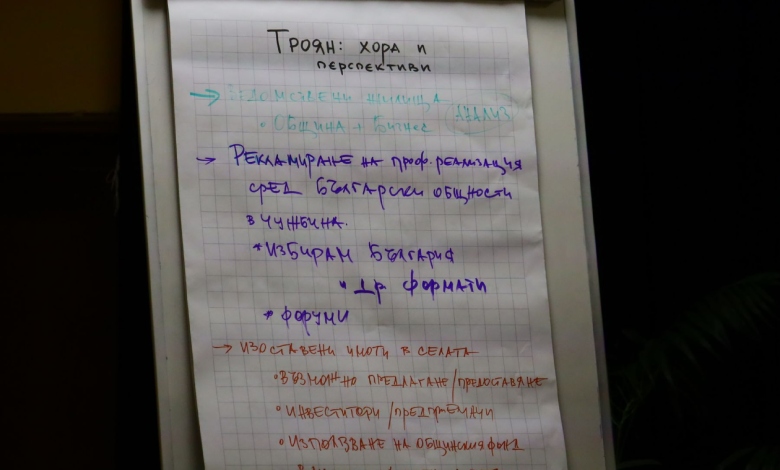 Троян: хора и
перспективи
→ Ведомствени жилища
• Община + Бизнес
Анализ
→ Рекламиране на проф. реализация
сред български общности
в чужбина.
* Избирам България
* др. формати
* форуми
→ Изоставени имоти в селата
• Възможно предлагане/предоставяне
• Инвеститори/предприемачи
• Използване на общинския фонд